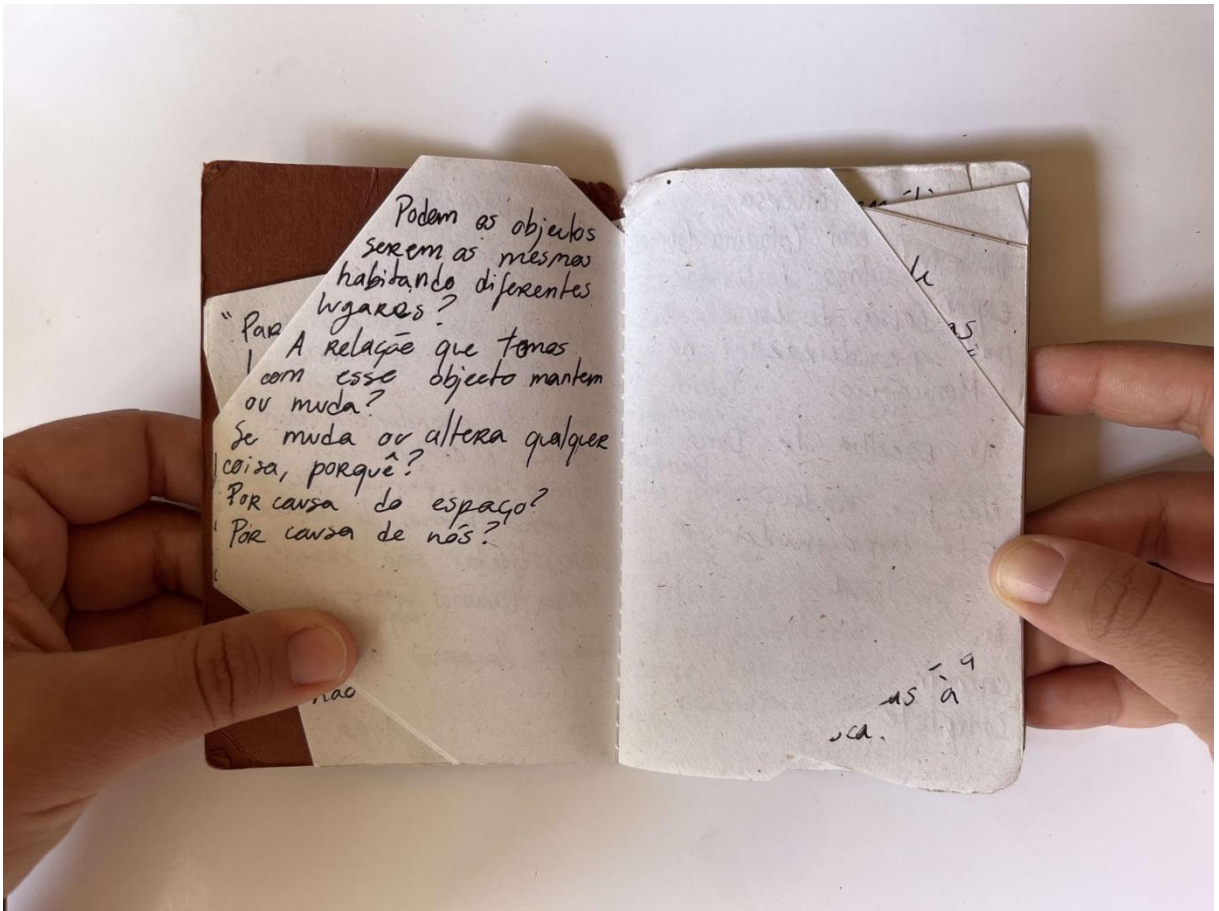 Podem os objectos
serem os mesmos
habitando diferentes
lugares?
"Par
A relação que temos
com esse objecto mantem
ou muda?
Se muda ou altera qualquer
coisa, porquê?
Por causa do espaço?
Por causa de nós?
não
de
as,
a
as à
ca.